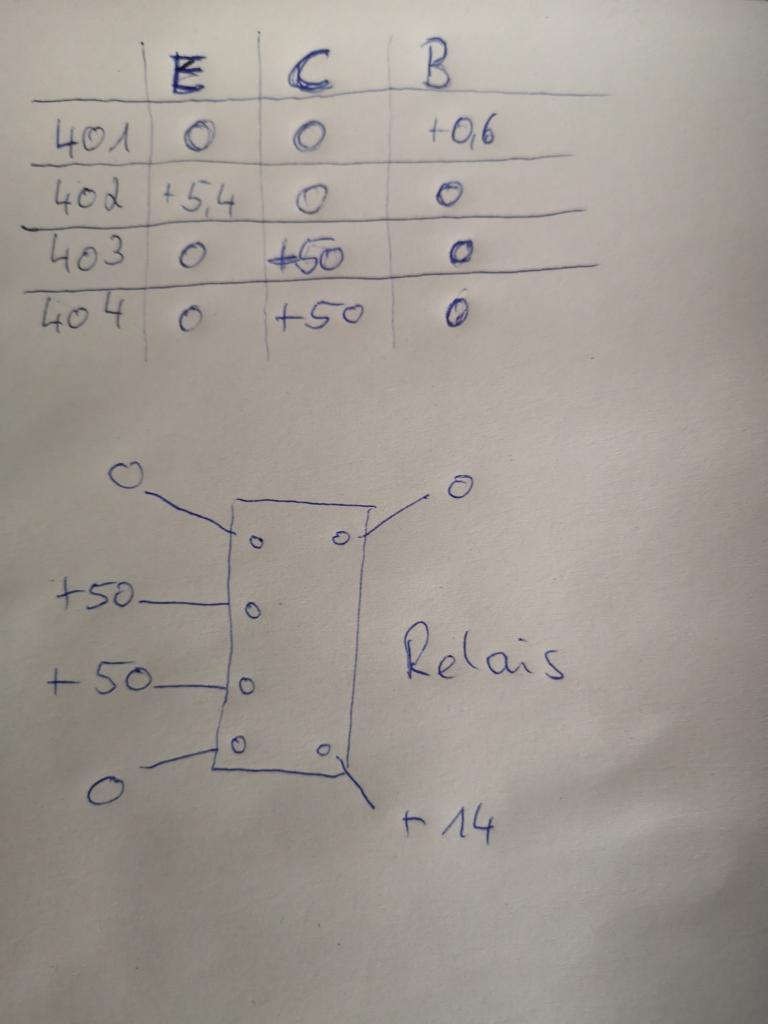 E C B
401 0 0 +0,6
402 +5,4 0 0
403 0 +50 0
404 0 +50 0
0 0
+50
+50
Relais
0
+14